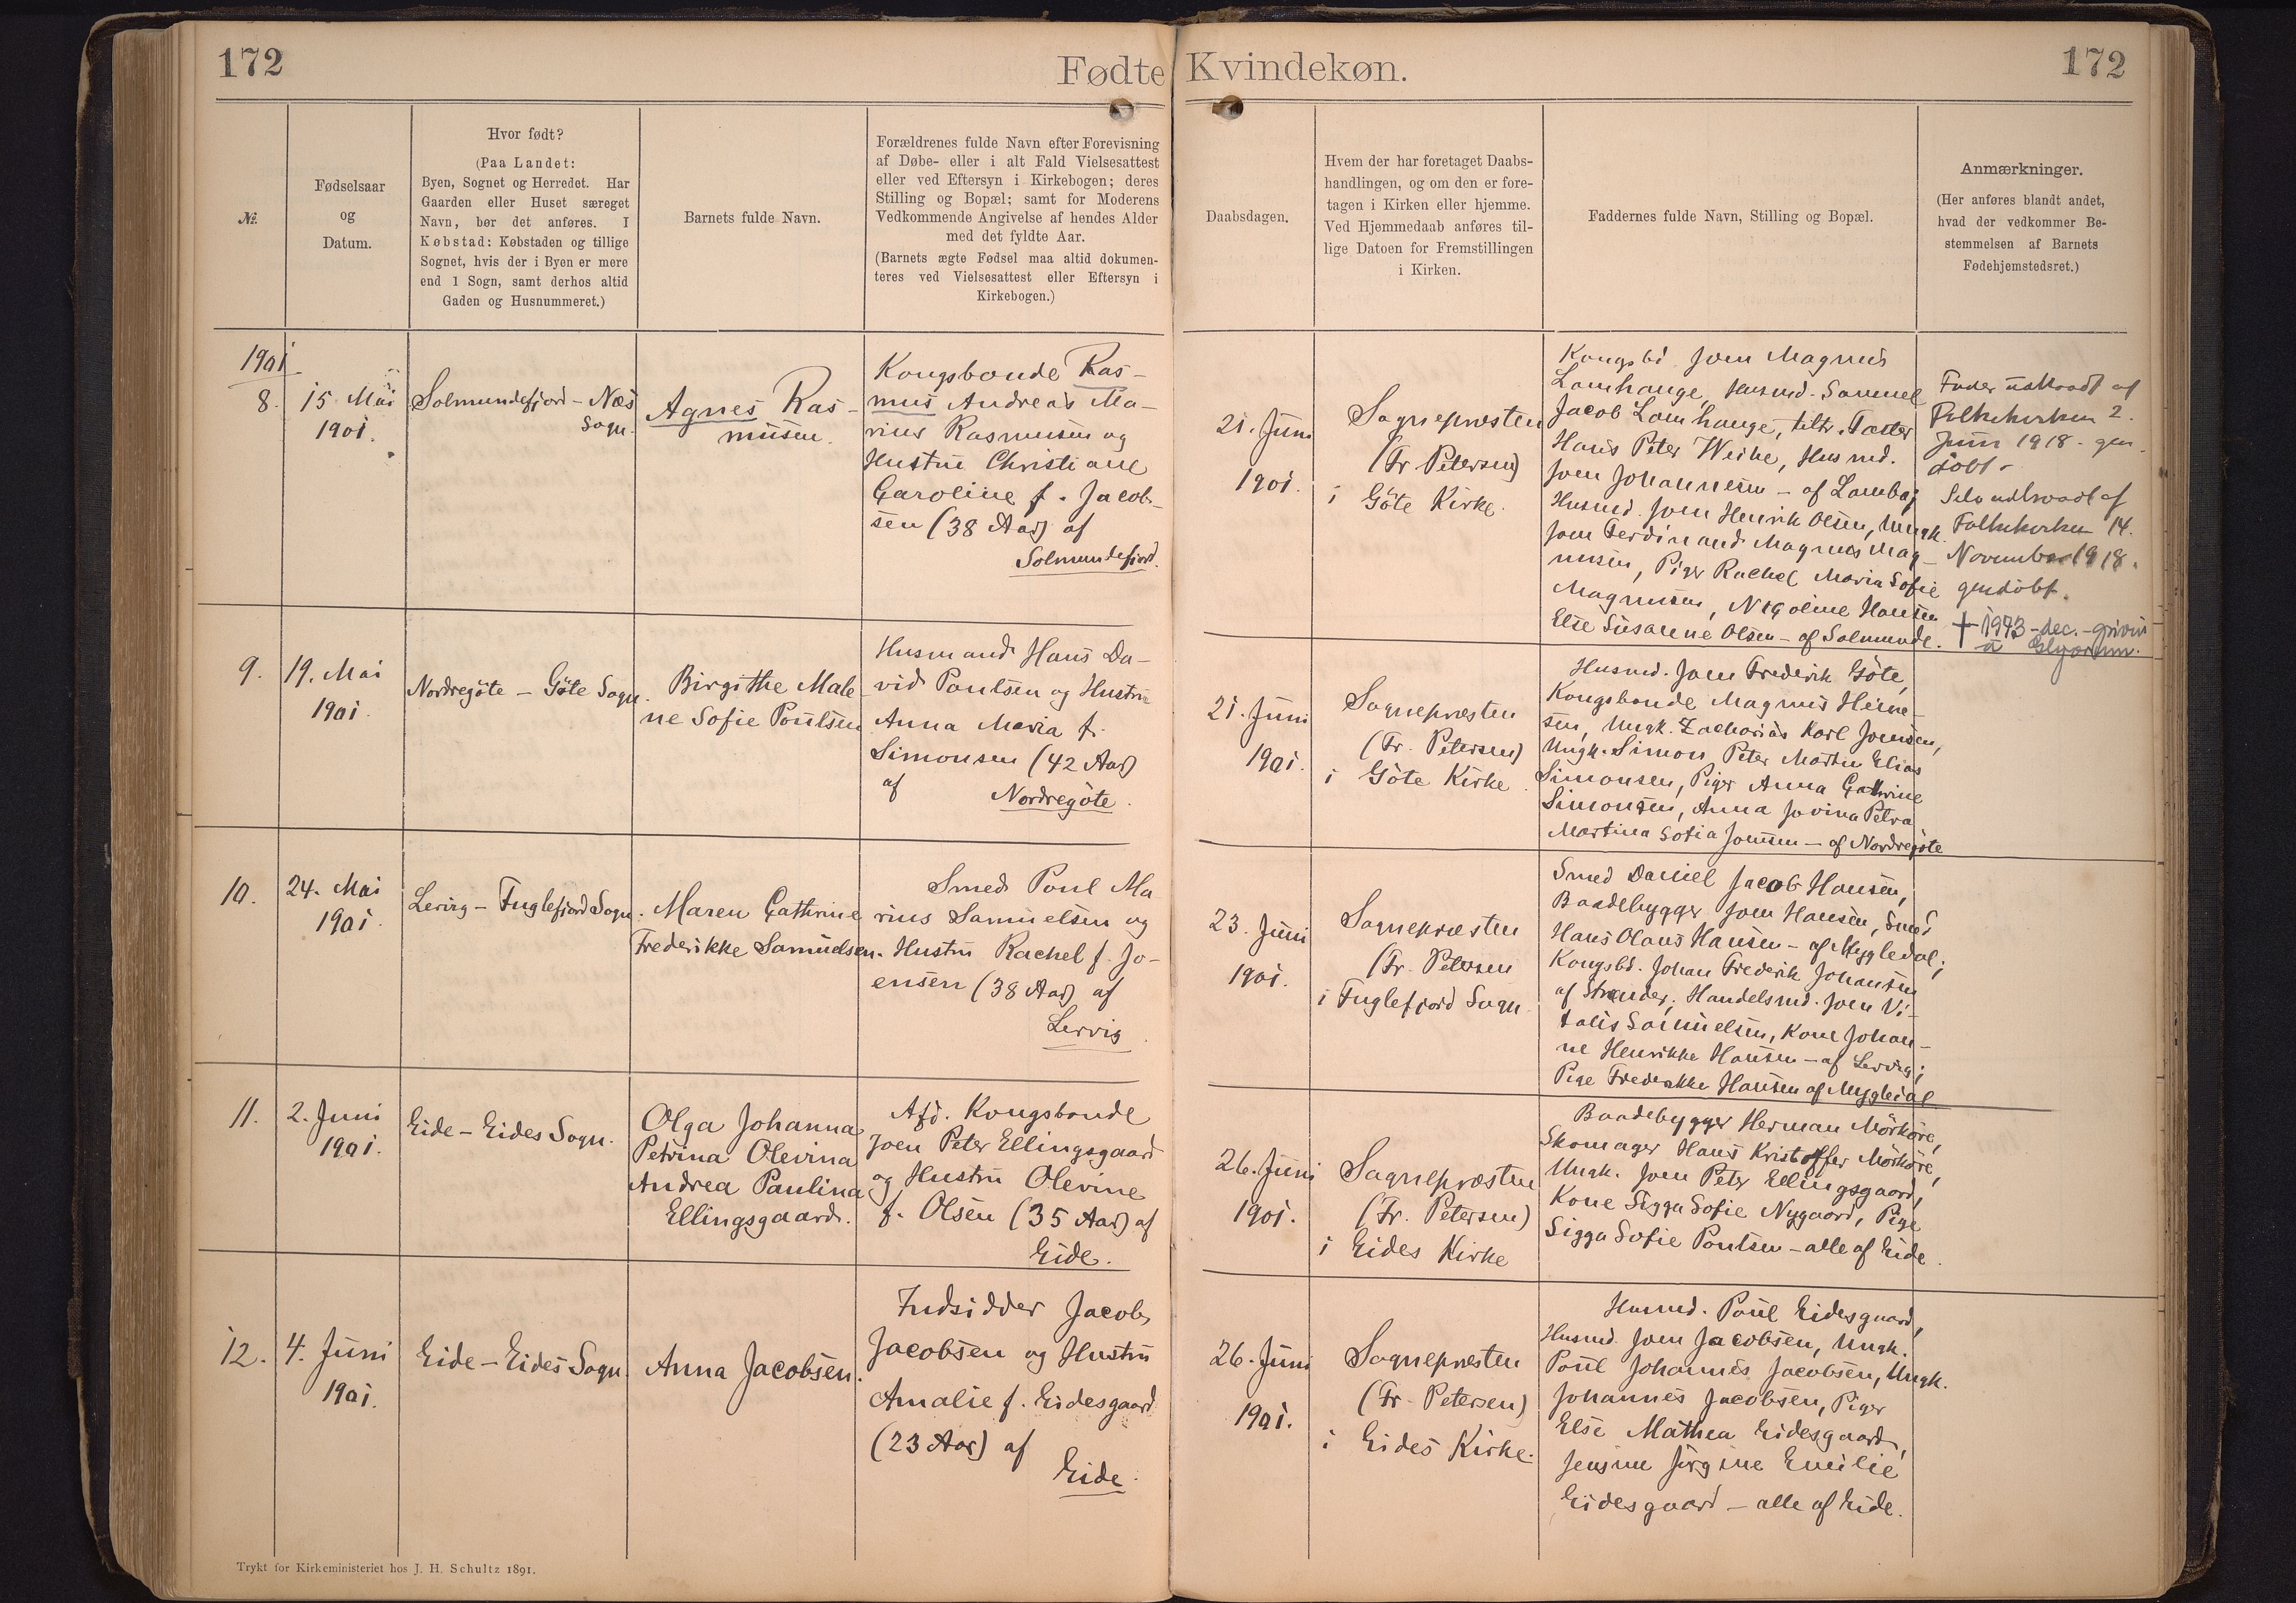 172
Fødte Kvindekøn.
172
№.
Fødselsaar
og
Datum.
Hvor født?
(Paa Landet:
Byen, Sognet og Herredet. Har
Gaarden eller Huset særeget
Navn, bør det anføres. I
Købstad: Købstaden og tillige
Sognet, hvis der i Byen er mere
end 1 Sogn, samt derhos altid
Gaden og Husnummeret.)
Barnets fulde Navn.
Forældrenes fulde Navn efter Forevisning
af Døbe- eller i alt Fald Vielsesattest
eller ved Eftersyn i Kirkebogen; deres
Stilling og Bopæl; samt for Moderens
Vedkommende Angivelse af hendes Alder
med det fyldte Aar.
(Barnets ægte Fødsel maa altid dokumen-
teres ved Vielsesattest eller Eftersyn i
Kirkebogen.)
Daabsdagen.
Hvem der har foretaget Daabs-
handlingen, og om den er fore-
tagen i Kirken eller hjemme.
Ved Hjemmedaab anføres til-
lige Datoen for Fremstillingen
i Kirken.
Faddernes fulde Navn, Stilling og Bopæl.
Anmærkninger.
(Her anføres blandt andet,
hvad der vedkommer Be-
stemmelsen af Barnets
Fødehjemstedsret.)
1901
8.
15 Mai
1901.
Solmundefjord - Næs
Sogn.
Agnes Ras-
musen.
Kongsbonde Ras-
mus Andreas Ma-
rius Rasmusen og
Hustru Christiane
Caroline f. Jacob-
sen (38 Aar) af
Solmundefjord.
21. Juni
1901.
Sognepræsten
(Fr. Petersen)
i Göte Kirke.
Kongsbd Joen Magnus
Lamhauge, Husmd. Samuel
Jacob Lamhauge,
Hans Peter Weihe, Husmd.
Joen Johannesen - af Lamba;
Husmd. Joen Henrik Olsen, Ungk.
Joen Ferdinand Magnus Mag-
nusen, Piger Rachel Maria Sofie
Magnusen, Nigoline Hansen
Else Susanne Olsen - af Solmunde.
Fader udtraadt af
Folkekirken 2.
Juni 1918 - gen
döbt -
Selv udtraadt af
Folkekirken 14.
November 1918.
gendöbt.
† 1973 - dec. -
9.
19. Mai
1901.
Nordregöte - Göte Sogn.
Birgithe Male
ne Sofie Poulsen
Husmand Hans Da-
vid Poulsen og Hustru
Anna Maria f.
Simonsen (42 Aar)
af Nordregöte.
21. Juni
1901.
Sognepræsten
(Fr. Petersen)
i Göte Kirke.
Husmd. Joen Frederik Göte,
Kongsbonde Magnus Heine-
sen, Ungk. Zacharias Karl Joensen,
Ungk. Simon Peter Martin Elias
Simonsen, Piger Anna Cathrine
Simonsen, Anna Jovina Petra
Martina Sofia Joensen - af Nordregöte
10.
24. Mai
1901.
Lervig - Fuglefjord Sogn.
Maren Cathrine
Frederikke Samuelsen.
Smed Poul Ma
rius Samuelsen og
Hustru Rachel f. Jo-
ensen (38 Aar) af
Lervig
23. Juni
1901.
Sognepræsten
(Fr. Petersen
i Fuglefjord Sogn.
Smed Daniel Jacob Hansen,
Baadebygger Joen Hansen, Smed
Hans Olaus Hansen - af Mygledal;
Kongsbd. Johan Frederik Johansen
af Strænder; Handelsmd. Joen Vi-
talis Samuelsen, Kone Johan-
ne Henrikke Hansen - af Lervig;
Pige Frederikke Hansen af Mygledal
11.
2. Juni
1901.
Eide - Eides Sogn.
Olga Johanna
Petrina Olevina
Andrea Paulina
Ellingsgaard.
Afd. Kongsbonde
Joen Peter Ellingsgaard
og Hustru Olevine
f. Olsen (35 Aar) af
Eide.
26. Juni
1901.
Sognepræsten
(Fr. Petersen)
i Eides Kirke
Baadebygger Herman Mörköre,
Skomager Hans Kristoffer Mörköre,
Ungk. Joen Peter Ellingsgaard,
Kone Sigga Sofie Nygaard, Pige
Sigga Sofie Poulsen - alle af Eide.
12.
4. Juni
1901.
Eide - Eides Sogn.
Anna Jacobsen.
Indsidder Jacob
Jacobsen og Hustru
Amalie f. Eidesgaard
(23 Aar) af
Eide.
26. Juni
1901.
Sognepræsten
(Fr. Petersen)
i Eides Kirke.
Husmd. Poul Eidesgaard,
Husmd. Joen Jacobsen, Ungk.
Poul Johannes Jacobsen, Ungk.
Johannes Jacobsen, Piger
Else Mathea Eidesgaard,
Jensine Jörgine Emilie
Eidesgaard - alle af Eide.
Trykt for Kirkeministeriet hos J. H. Schultz 1891.